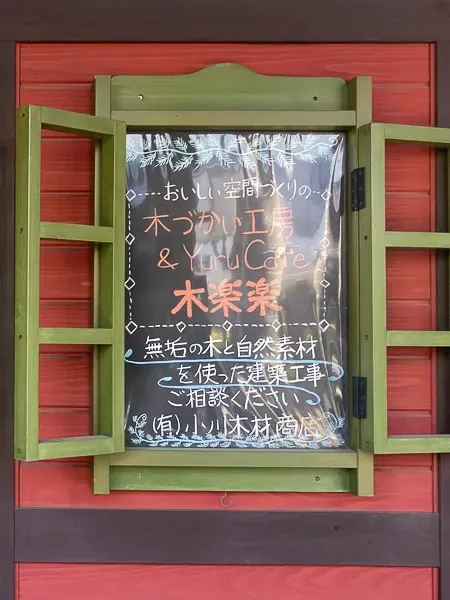 おいしい空間づくりの
木づかい工房
& Yuru Cafe
木楽楽
無垢の木と自然素材
を使った建築工事
ご相談ください
(有)小川木材商店